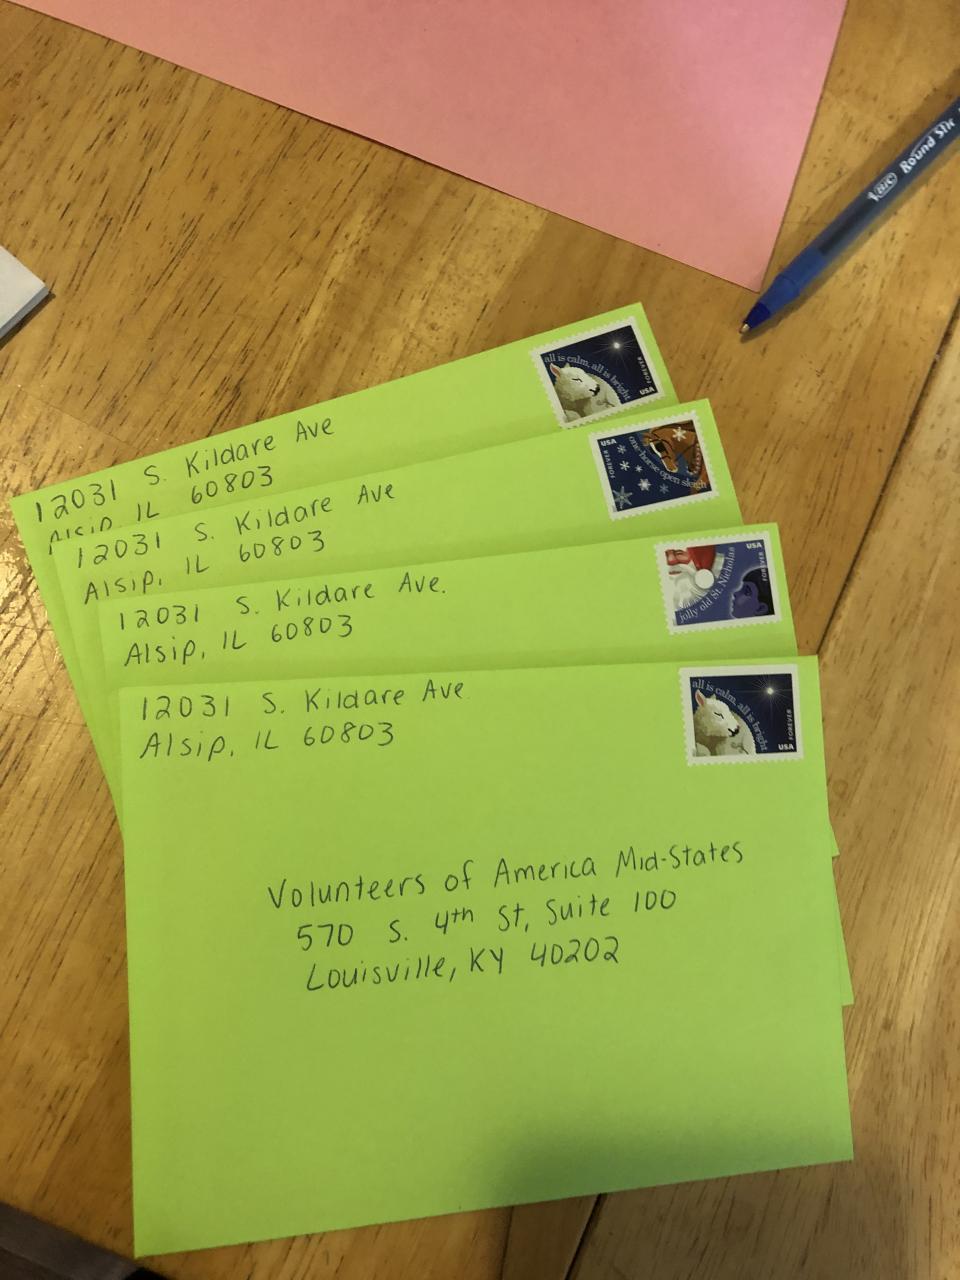 BIC Round Stic
all is calm, all is bright
FOREVER
USA
12031 S. Kildare Ave
Alsip, IL 60803
USA
FOREVER
one-horse open sleigh
12031 S. Kildare Ave
Alsip, IL 60803
USA
FOREVER
jolly old St. Nicholas
12031 S. Kildare Ave.
Alsip, IL 60803
all is calm, all is bright
FOREVER
USA
12031 S. Kildare Ave
Alsip, IL 60803
Volunteers of America Mid-States
570 S. 4th St, Suite 100
Louisville, KY 40202